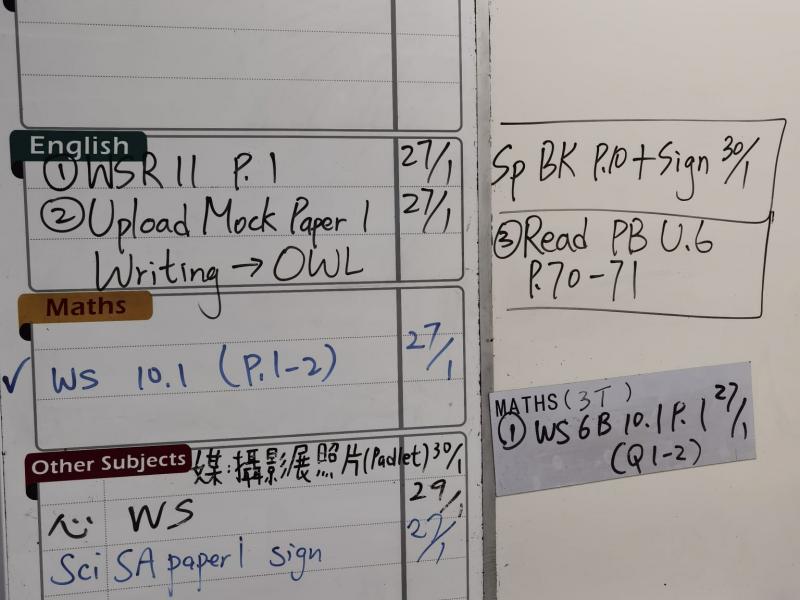 English
① WSR 11 P.1 27/1
② Upload Mock Paper 1 27/1
Writing → OWL
Maths
✓ WS 10.1 (P.1-2) 27/1
Other Subjects
媒:攝影展照片(Padlet) 30/1
心 WS 29/1
Sci SA paper 1 sign 27/1
Sp BK P.10 + Sign 30/1
③ Read PB U.6
P.70-71
MATHS (3T)
① WS 6B 10.1 P.1 27/1
(Q1-2)